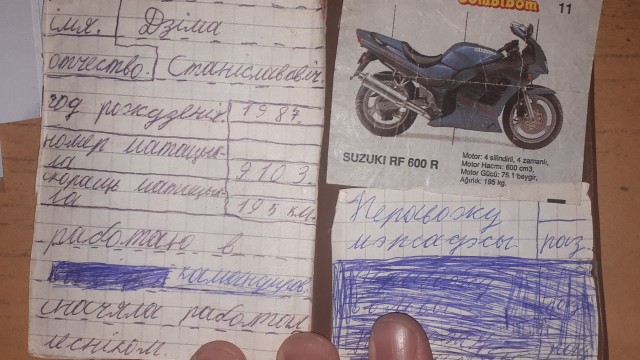 імя. Дзіма
отчество. Станіславовіч.
год рожддения 1987.
номер матацык-
ла 9103.
скорасць матацык-
ла 195 км.
работаю в
камандиров
сначяла работал
лесніком.
Bombibom
11
SUZUKI RF 600 R
Motor: 4 silindirli, 4 zamanlı,
Motor Hacmi: 600 cm3,
Motor Gücü: 75.1 beygir,
Ağırlık: 195 kg.
Перавожу
раз.